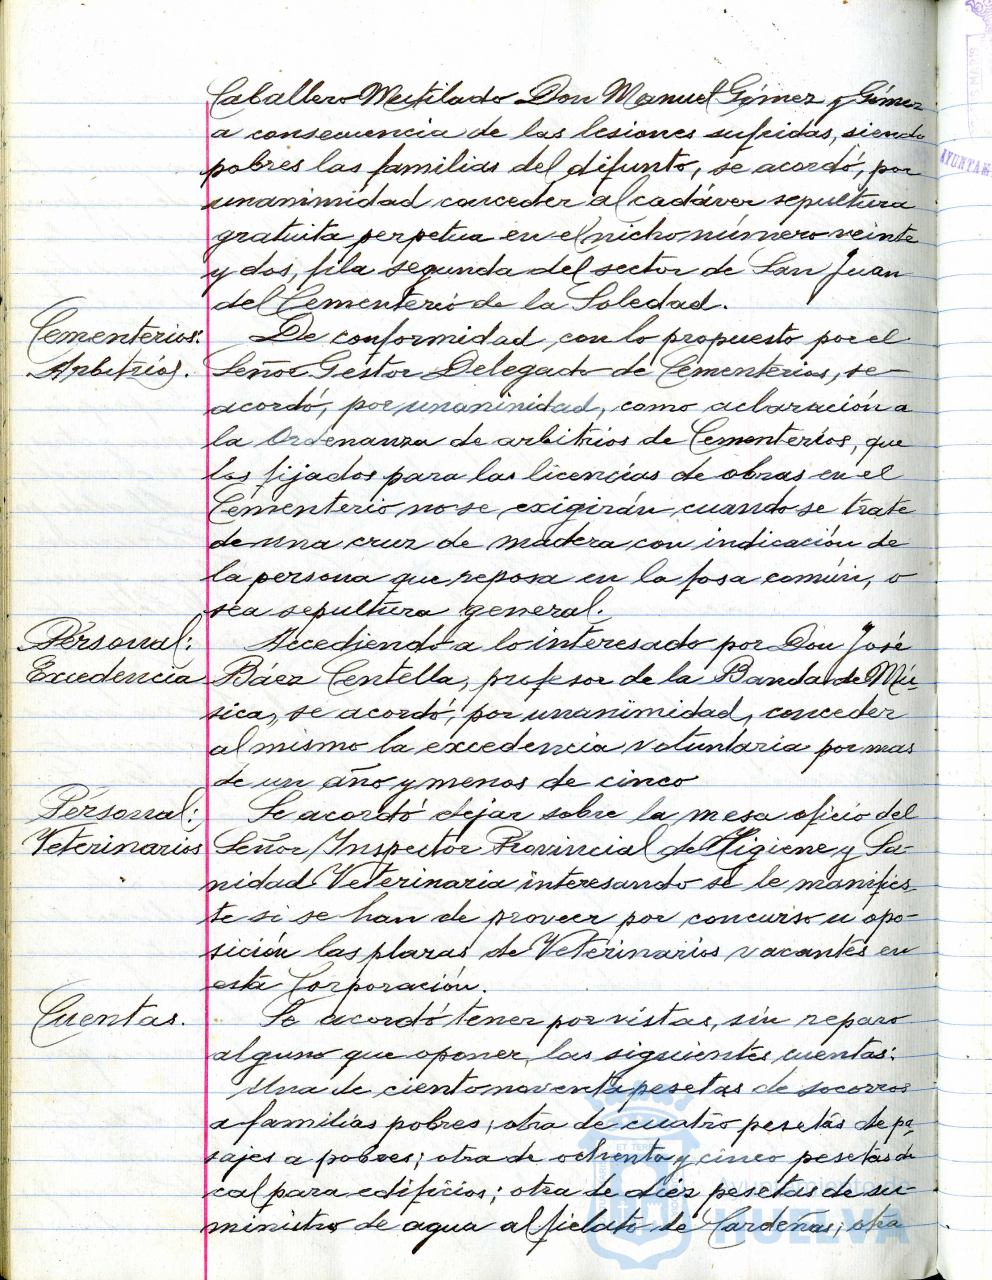 Caballero Mutilado Don Manuel Gómez y Gómez
a consecuencia de las lesiones sufridas, siendo
pobres las familias del difunto, se acordó, por
unanimidad conceder al cadáver sepultura
gratuita perpetua en el nicho número veinte
y dos, fila segunda del sector de San Juan
del Cementerio de la Soledad.
Cementerios:
Arbitrios.
De conformidad, con lo propuesto por el
Señor Gestor Delegado de Cementerios, se
acordó, por unaninidad, como aclaración a
la Ordenanza de arbitrios de Cementerios, que
los fijados para las licencias de obras en el
Cementerio no se exigirán cuando se trate
de una cruz de madera con indicación de
la persona que reposa en la fosa común, o
sea sepultura general.
Personal:
Excedencia
Accediendo a lo interesado por Don José
Báez Centella, profesor de la Banda de Mú-
sica, se acordó, por unanimidad, conceder
al mismo la excedencia voluntaria por mas
de un año y menos de cinco
Personal:
Veterinarios
Se acordó dejar sobre la mesa oficio del
Señor Inspector Provincial de Higiene y Sa-
nidad Veterinaria interesando se le manifies-
te si se han de proveer por concurso u opo-
sición las plazas de Veterinarios vacantes en
esta Corporación.
Cuentas.
Se acordó tener por vistas, sin reparo
alguno que oponer, las siguientes cuentas:
Una de ciento noventa pesetas de socorros
a familias pobres; otra de cuatro pesetas de pa-
sajes a pobres; otra de ochenta y cinco pesetas de
cal para edificios; otra de diez pesetas de su-
ministro de agua al fielato de Cardeñas; otra
AYUNTAM
Ayuntamiento de
HUELVA